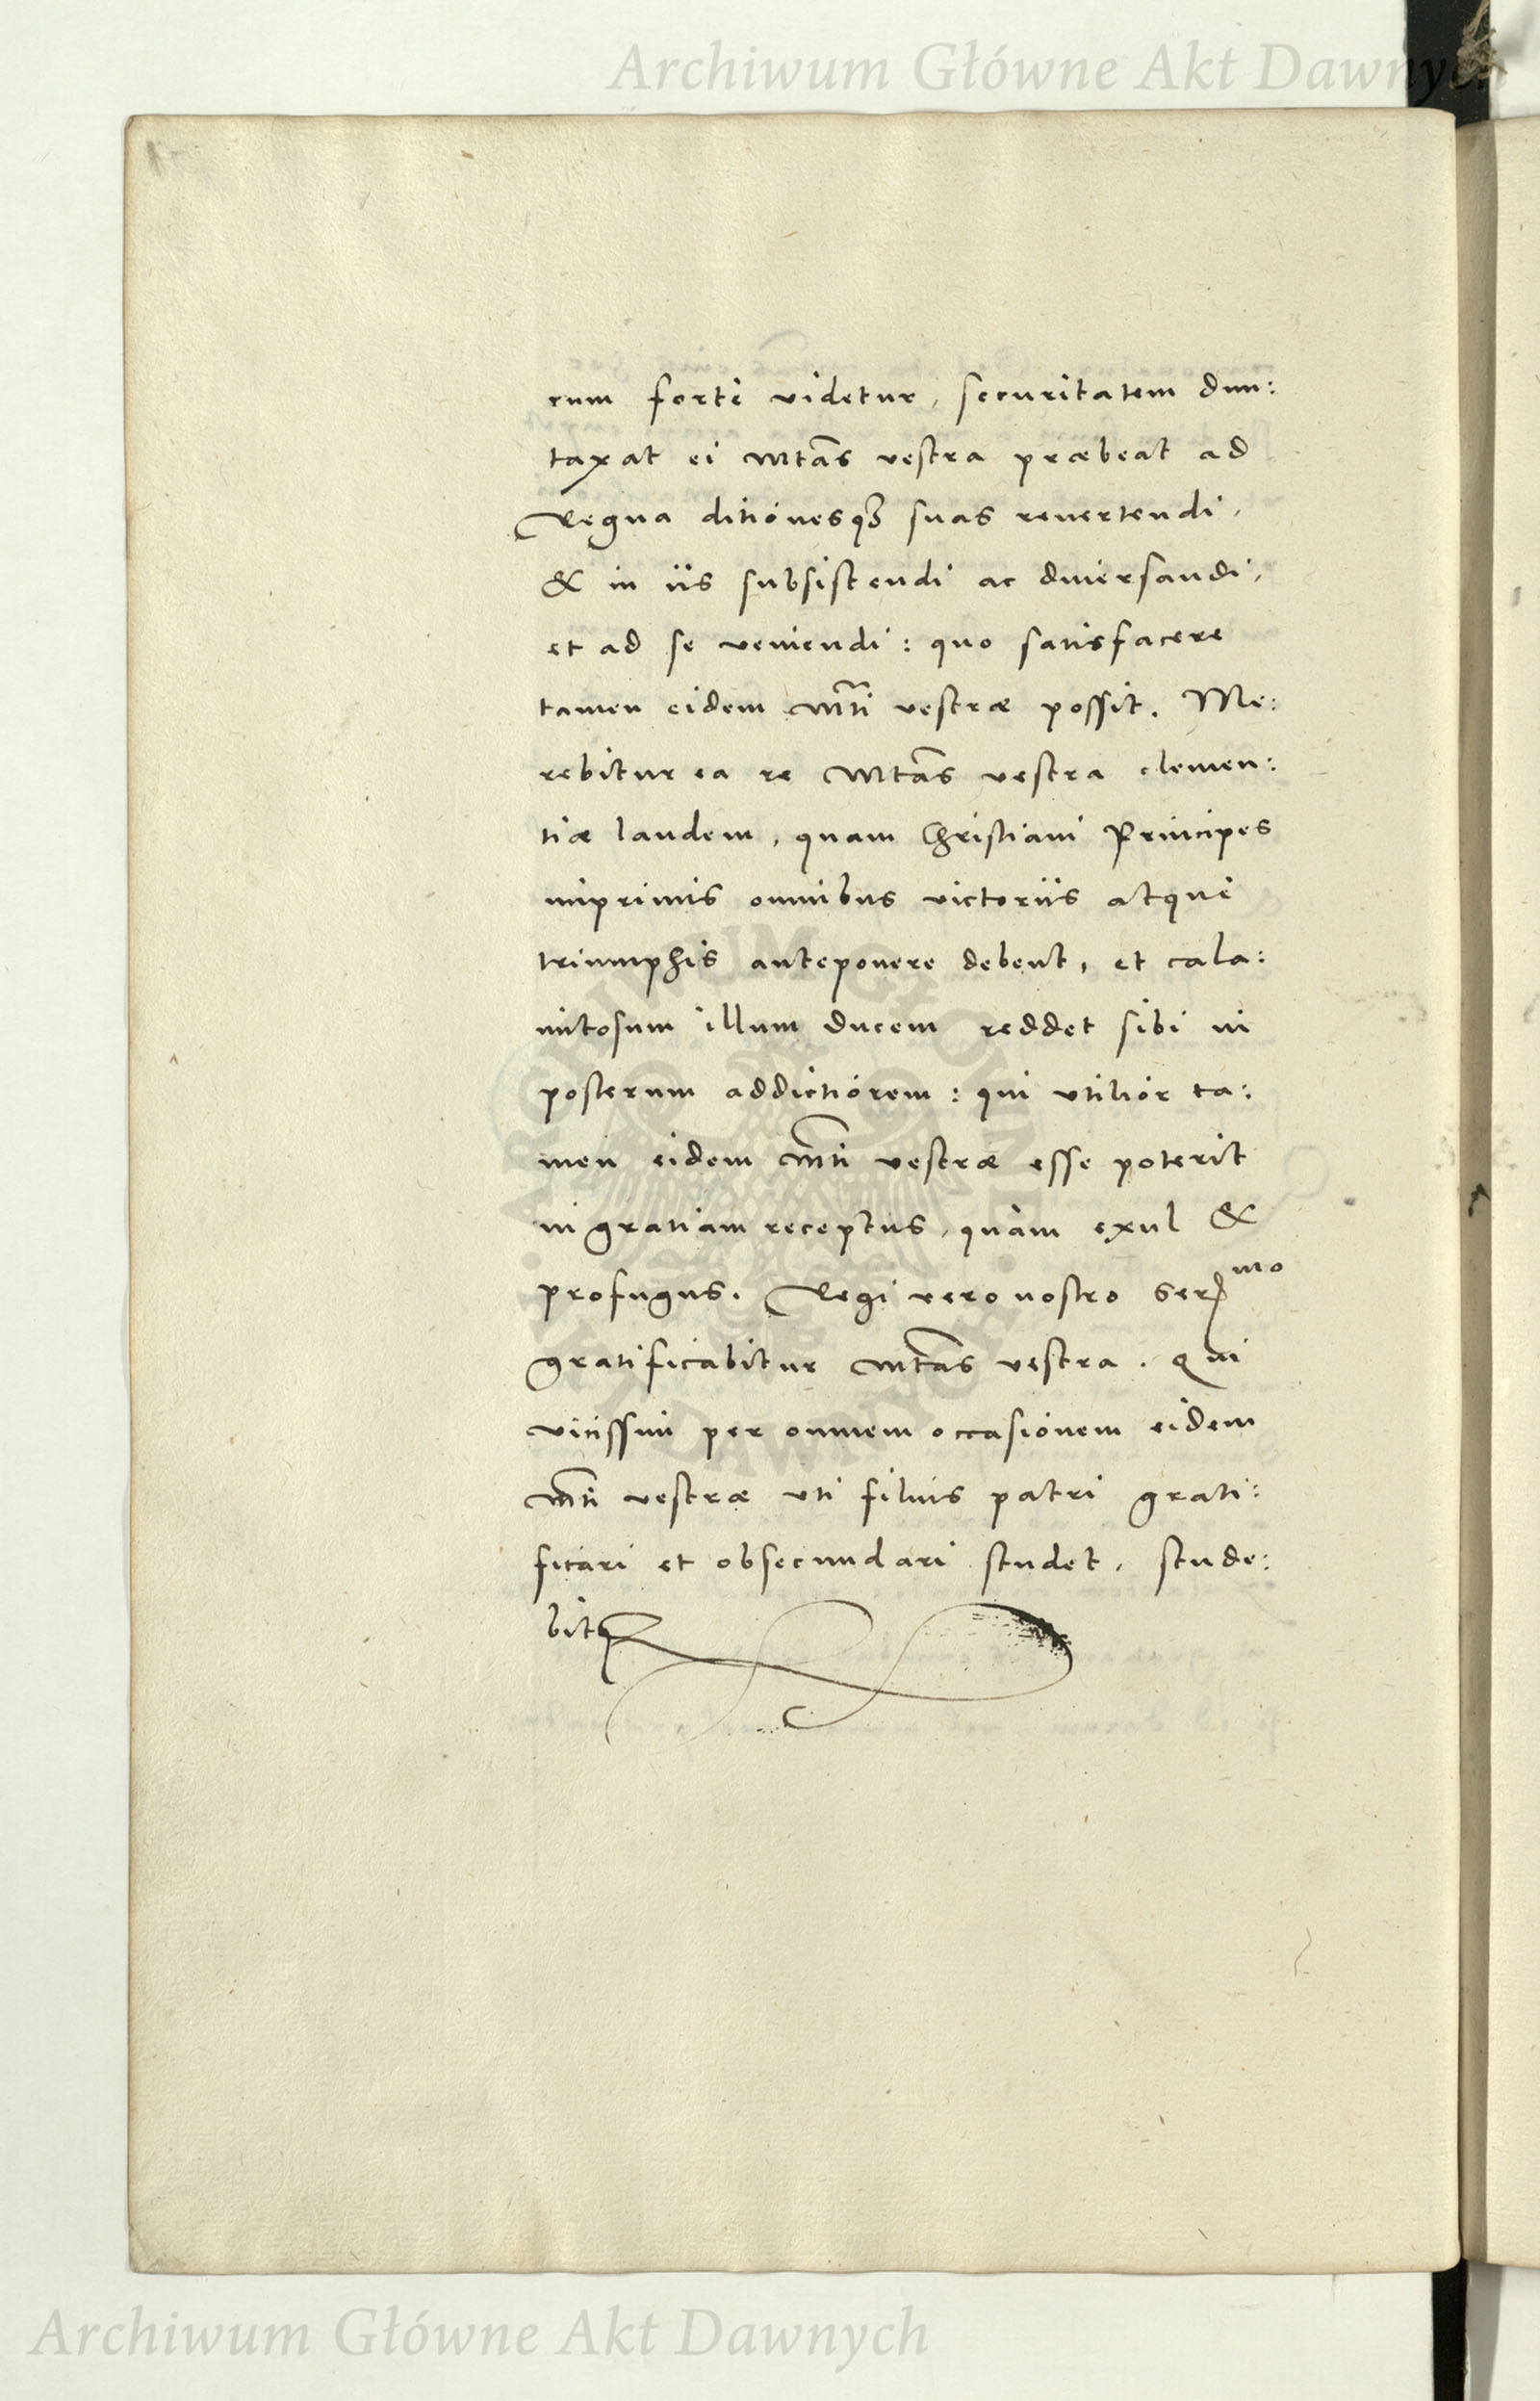 Archiwum Główne Akt Dawnych
rum forte videtur, securitatem dun:
taxat ei Mtãs vestra præbeat ad
Regna ditionesq3 suas revertendi,
& in iis subsistendi ac diversandi,
et ad se veniendi: quo satisfacere
tamen eidem Mti vestræ possit. Me:
rebitur ea re Mtãs vestra clemen:
tiæ laudem, quam Christiani Principes
inprimis omnibus victoriis atque
triumphis anteponere debent, et cala:
mitosum illum ducem reddet sibi in
posterum addictiorem: qui utilior ta:
men eidem Mti vestræ esse poterit
in gratiam receptus, quàm exul &
profugus. Regi vero nostro Sermo
gratificabitur Mtãs vestra. Qui
vicissim per omnem occasionem eidem
Mti vestræ uti filius patri grati:
ficari et obsecundari studet, stude:
bitq
Archiwum Główne Akt Dawnych